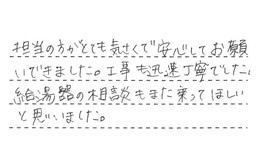 担当の方がとても気さくで安心してお願
いできました。工事も迅速丁寧でした。
給湯器の相談もまた乗ってほしい
と思いました。